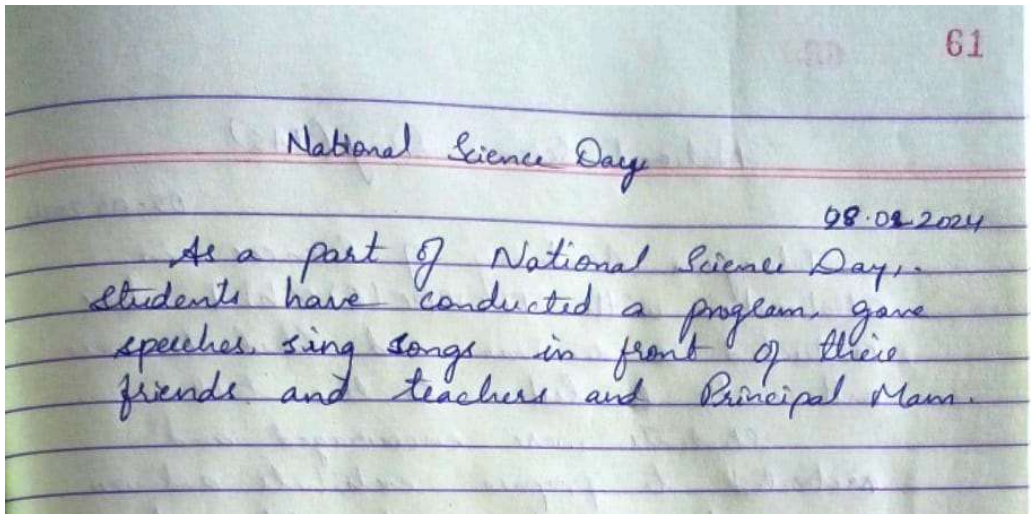 61
National Science Day
28.02.2024
As a part of National Science Day,.
students have conducted a program, gave
speeches, sing songs in front of their
friends and teachers and Principal Mam.